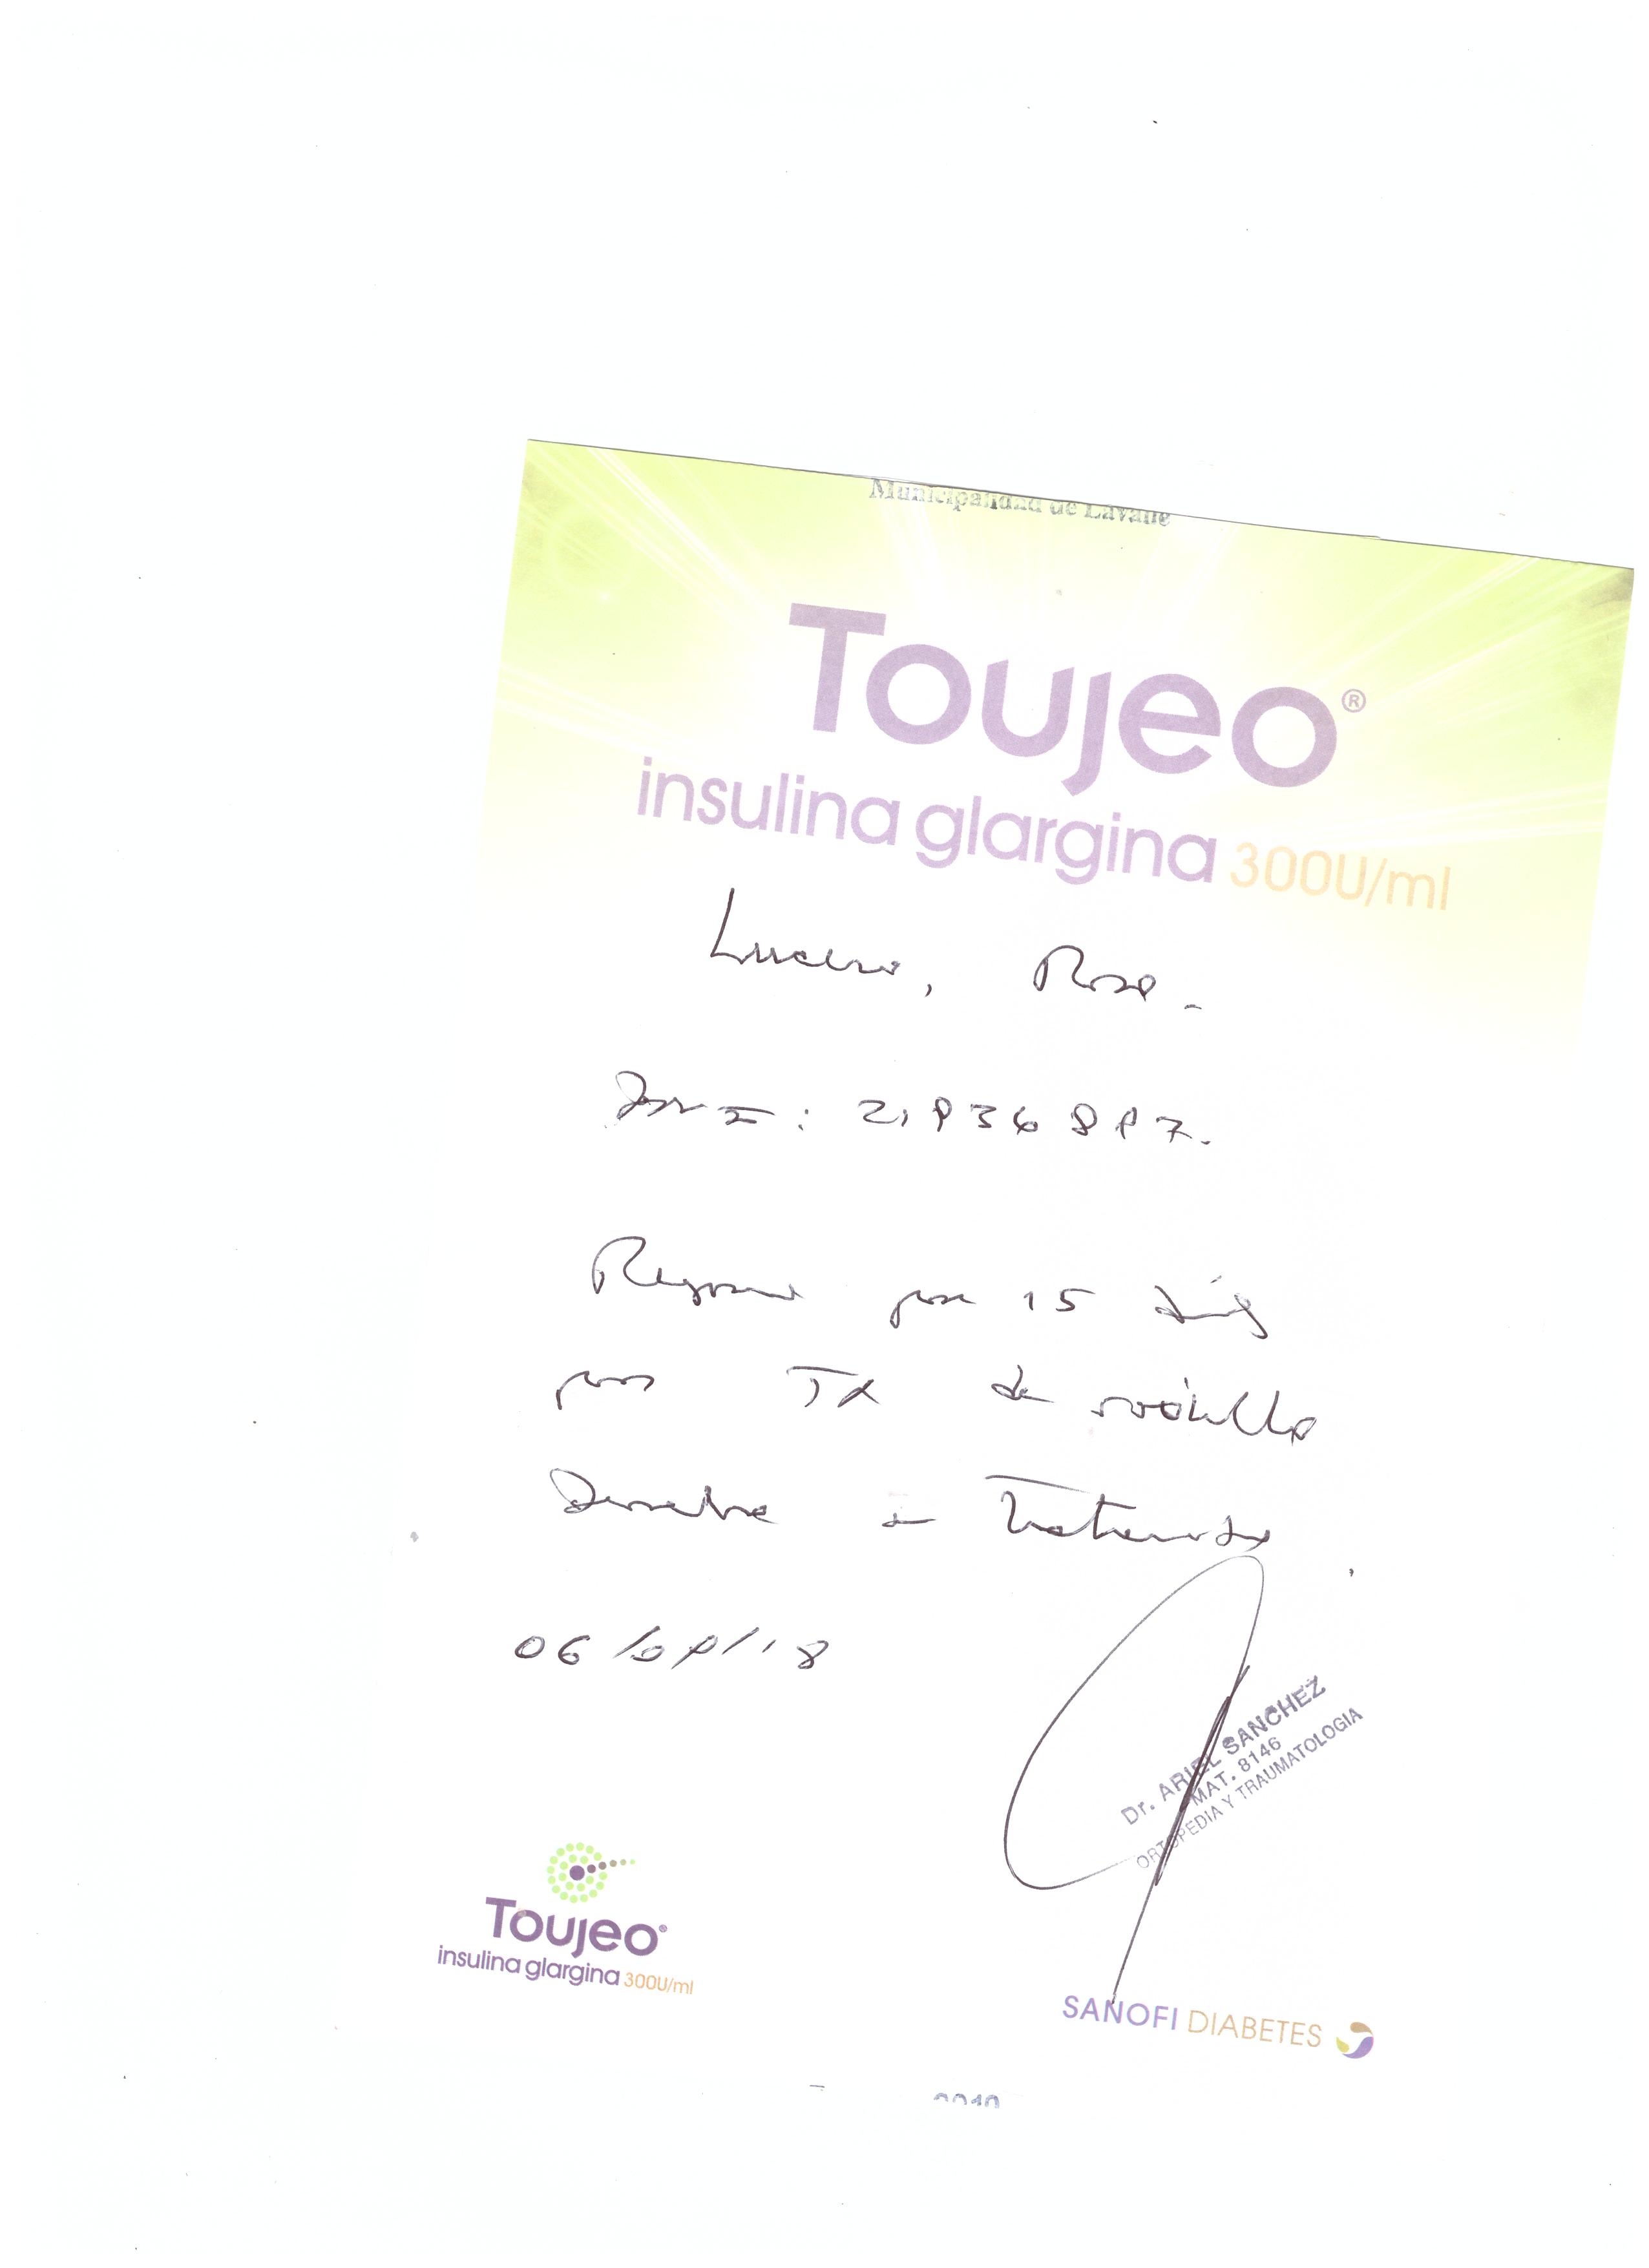 Municipalidad de Lavalle
Toujeo®
insulina glargina 300U/ml
Lucero, Rosa.
DNI:
Reposo por 15 días
por TX de rodilla
Derecha en Tratamiento
06/09/18
Dr. ARIEL SANCHEZ
MAT. 8146
ORTOPEDIA Y TRAUMATOLOGIA
Toujeo®
insulina glargina 300U/ml
SANOFI DIABETES